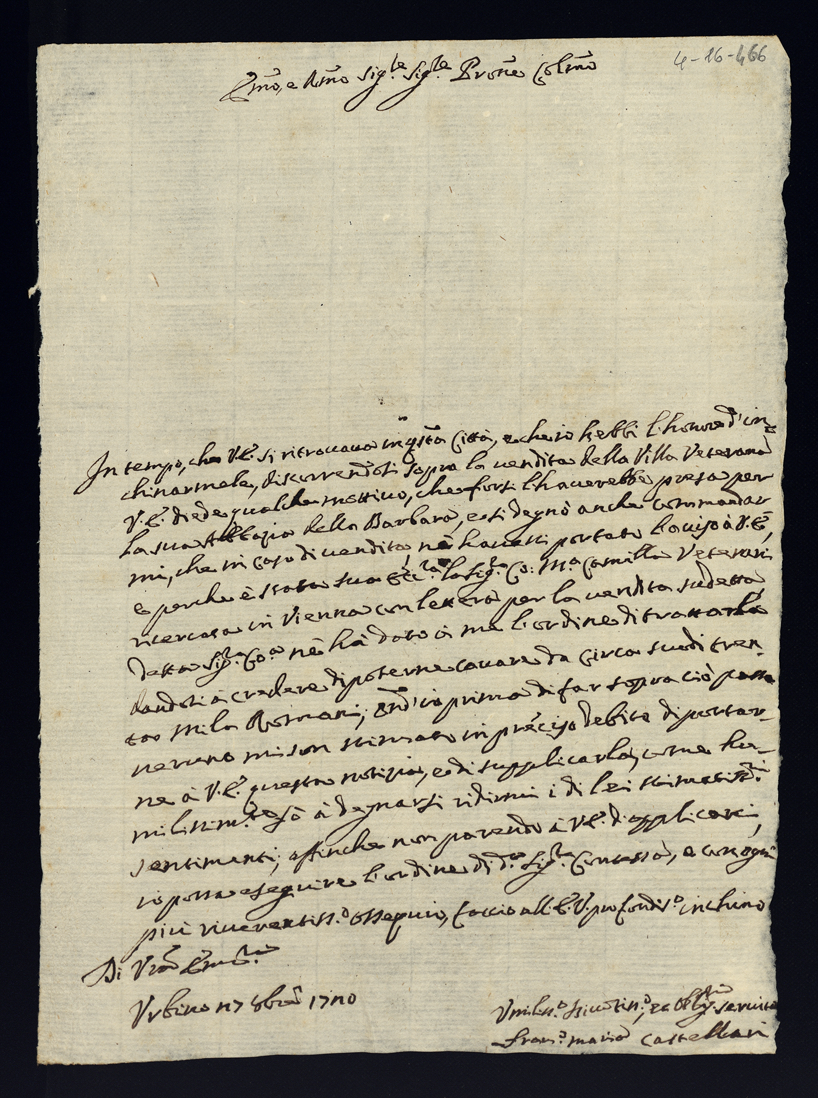 4-16-466
Emo, e Rmo Sig.re Sig.re Prone Colmo
In tempo, che V.E. si ritrovava in qsta Città, e che io hebbi l'honore d'in=
chinarmele, discorrendosi sopra la vendita della Villa Veterana
V.E. diede qualche mottivo, che forsi l'haverebbe presa per
la sua Abbazia della Barbara, e si degnò anche commandar
mi, che in caso di vendita nè havessi portato l'aviso à V.E.,
e perche è stata sua la Sig.ra Co: Ma Camilla Veterani
ricercata in Vienna con lettera per la vendita sudetta
detta Sig.ra Co.a nè hà dato à me l'ordine di trattarla
dandosi à credere di poterne cavare da circa scudi tren-
ta mila Romani; ond'io prima di far sopra ciò
veruno mi son stimato in preciso debito di portar-
ne à V.E. questa notizia, e di supplicarla, come hu-
milissim.te fò à degnarsi ridirmi i di lei stimatiss.mi
sentimenti, affinche non parendo à V.E. d'applicarci,
io possa eseguire l'ordine di d.a Sig.ra Contessa, e con ogni
più riverentiss.o ossequio, faccio all'E.V. profondis.o inchino
Di Vra Emza
Urbino 17 8bre 1710
Umiliss.o Divotiss.o, et Obligmo servitore
Fran.o Maria Castellani